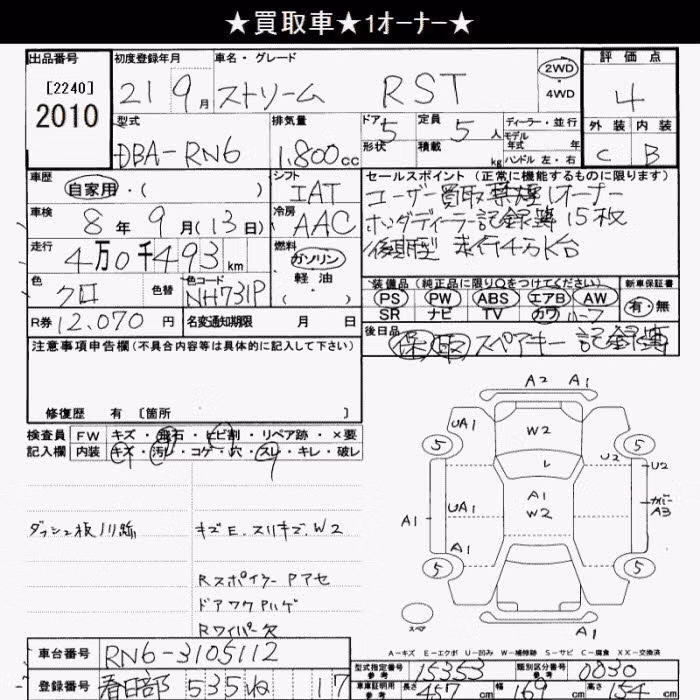 ★買取車★1オーナー★
出品番号 初度登録年月 車名・グレード 評価点
[2240] 2010 21 9月 ストリーム RST 2WD・4WD 4
型式 排気量 ドア 定員 ディーラー・並行 外装 内装
DBA-RN6 1,800cc 5 5人 モデル年式 年 C B
形状 積載 kg ハンドル 左・右
車歴 シフト セールスポイント (正常に機能するものに限ります)
自家用・( ) IAT ユーザー買取 禁煙 1オーナー
車検 8年9月(13日) 冷房 AAC ホンダディーラー記録簿15枚
走行 4万0千493km 燃料 ガソリン 軽油 ( ) 後期型 走行4万K台
色 クロ 色替 色コード NH731P 装備品 (純正品に限り○をつけてください) 新車保証書
PS PW ABS エアB AW 有・無
R券 12,070円 名変通知期限 月 日 SR ナビ TV カワ ルーフ
注意事項申告欄 (不具合内容等は具体的に記入して下さい) 後日品 保 取 スペアキー 記録簿
修復歴 有 [箇所 ]
検査員 FW キズ・飛石・ヒビ割・リペア跡・×要
記入欄 内装 キズ・汚レ・コゲ・穴・スレ・キレ・破レ
ダッシュ板ノリ跡 キズE.スリキズ.W2
Rスポイラー Pアセ
ドアワクPハゲ
Rワイパー欠
A2 A1
UA1 W2
5 5
U2 U2
レ
A1
UA1 W2 カバーA3
A1
A1
5 5
スペア A1
A-キズ E-エクボ U-凹み W-補修跡 S-サビ C-腐食 XX-交換済
車台番号 RN6-3105112
型式指定番号 参考 15353 類別区分番号 参考 0030
登録番号 春日部 535 ね 17
車庫証明用 参考 長さ 457cm 幅 169cm 高さ 154cm